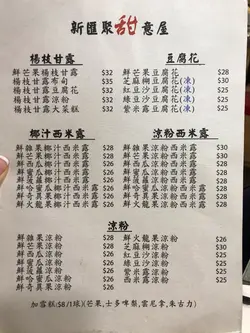 新匯聚甜意屋
楊枝甘露
鮮芒果楊枝甘露 $32
楊枝甘露布甸 $35
楊枝甘露豆腐花 $32
楊枝甘露涼粉 $32
楊枝甘露大菜糕 $32
豆腐花
鮮芒果豆腐花 $28
芝麻糊豆腐花(凍) $30
紅豆沙豆腐花(凍) $25
綠豆沙豆腐花(凍) $25
紫米露豆腐花(凍) $28
椰汁西米露
鮮雜果椰汁西米露 $28
鮮芒果椰汁西米露 $26
鮮蜜瓜椰汁西米露 $26
鮮菠蘿椰汁西米露 $26
鮮哈蜜瓜椰汁西米露 $26
鮮奇異果椰汁西米露 $26
鮮火龍果椰汁西米露 $26
涼粉西米露
鮮雜果涼粉西米露 $30
鮮芒果涼粉西米露 $28
鮮蜜瓜涼粉西米露 $28
鮮菠蘿涼粉西米露 $28
鮮哈蜜瓜涼粉西米露 $28
鮮奇異果涼粉西米露 $28
鮮火龍果涼粉西米露 $28
涼粉
鮮雜果涼粉 $28
鮮芒果涼粉 $26
鮮蜜瓜涼粉 $26
鮮菠蘿涼粉 $26
鮮哈蜜瓜涼粉 $26
鮮奇異果涼粉 $26
鮮火龍果涼粉 $26
芝麻糊涼粉 $30
紅豆沙涼粉 $25
綠豆沙涼粉 $25
紫米露涼粉 $28
加雪糕($8/1球)(芒果,士多啤梨,雲尼拿,朱古力)